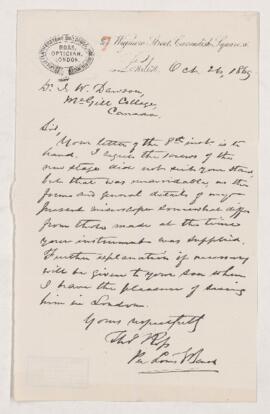 ROSS,
OPTICIAN,
LONDON.
7 Wigmore Street, Cavendish Square, W.
London, Oct. 26, 1869
Dr. J. W. Dawson,
McGill College,
Canada.
Sir
Your letter of the 8th inst. is to
hand. I regret the screws of the
new stage did not suit your stand,
but that was unavoidable, as the
forms and general details of my
present microscopes somewhat differ
from those made at the time
your instrument was supplied.
Further explanation if necessary
will be given to your son when
I have the pleasure of seeing
him in London.
Yours respectfully
Thos Ross
Per Louis